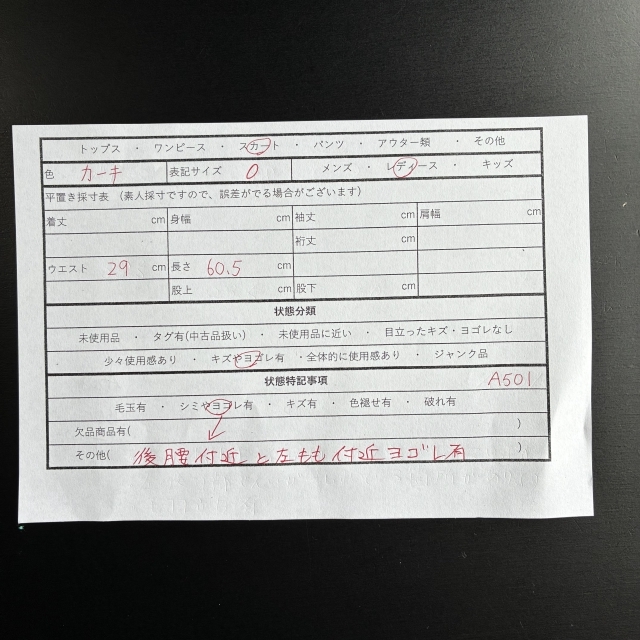 トップス ・ ワンピース ・ スカート ・ パンツ ・ アウター類 ・ その他
色 カーキ 表記サイズ 0 メンズ ・ レディース ・ キッズ
平置き採寸表 (素人採寸ですので、誤差がでる場合がございます)
着丈 cm 身幅 cm 袖丈 cm 肩幅 cm
裄丈 cm
ウエスト 29 cm 長さ 60.5 cm
股上 cm 股下 cm
状態分類
未使用品 ・ タグ有(中古品扱い) ・ 未使用品に近い ・ 目立ったキズ・ヨゴレなし
少々使用感あり ・ キズやヨゴレ有 ・全体的に使用感あり ・ ジャンク品
状態特記事項 A501
毛玉有 ・ シミやヨゴレ有 ・ キズ有 ・ 色褪せ有 ・ 破れ有
欠品商品有( )
その他( 後腰付近と左もも付近ヨゴレ有 )